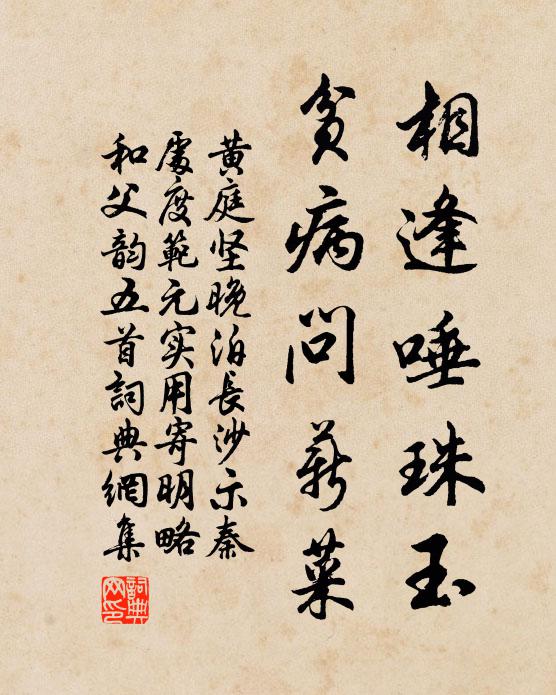 相逢唾珠玉
貧病問薪菜
黄庭坚晚泊長沙示秦
處度範元实用寄明略
和父韵五首詞典網集
詞典
网印